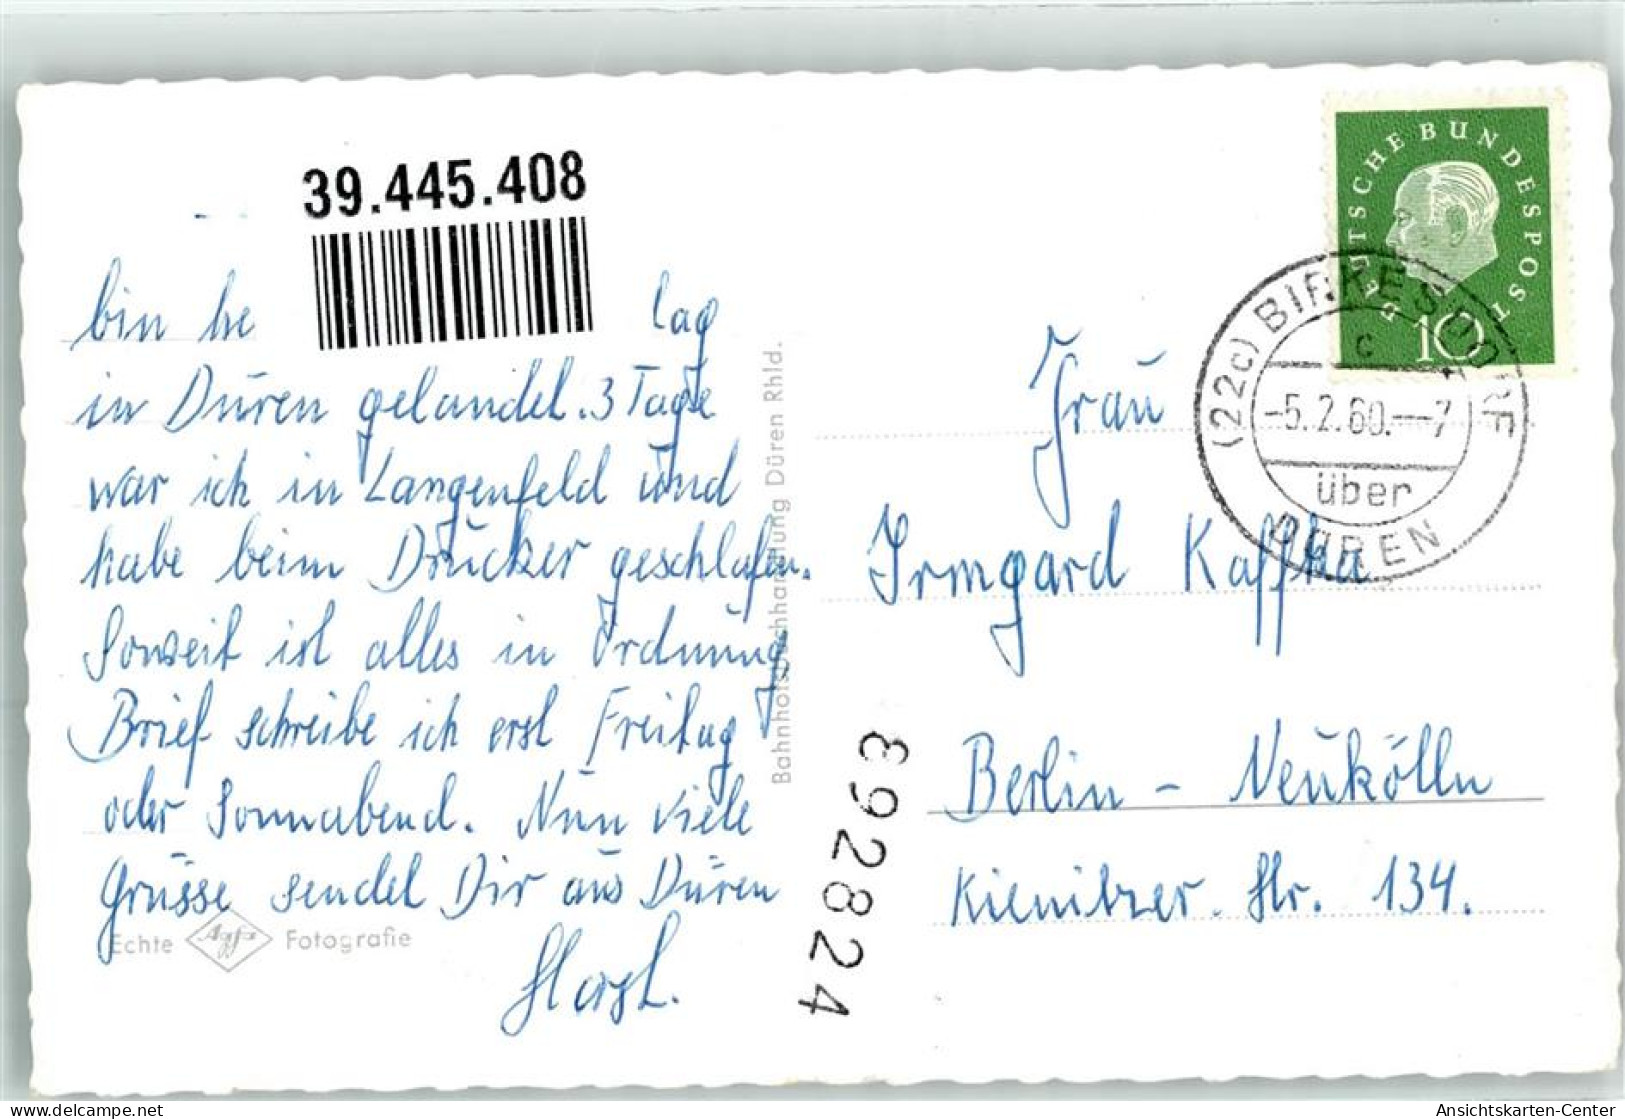 39.445.408
bin he
tag
in Düren gelandet. 3 Tage
war ich in Langenfeld und
habe beim Drucker geschlafen.
Soweit ist alles in Ordnung
Brief schreibe ich erst Freitag
oder Sonnabend. Nun viele
Grüsse sendet Dir aus Düren
Horst.
Echte Agfa Fotografie
Bahnhofsbuchhandlung Düren Rhld.
E92824
DEUTSCHE BUNDESPOST
10
(22c) BIRKESDORF
c
-5.2.60.--7
über
DÜREN
Frau
Irmgard Kaffka
Berlin - Neukölln
Kienitzer Str. 134.
Ansichtskarten-Center
www.delcampe.net